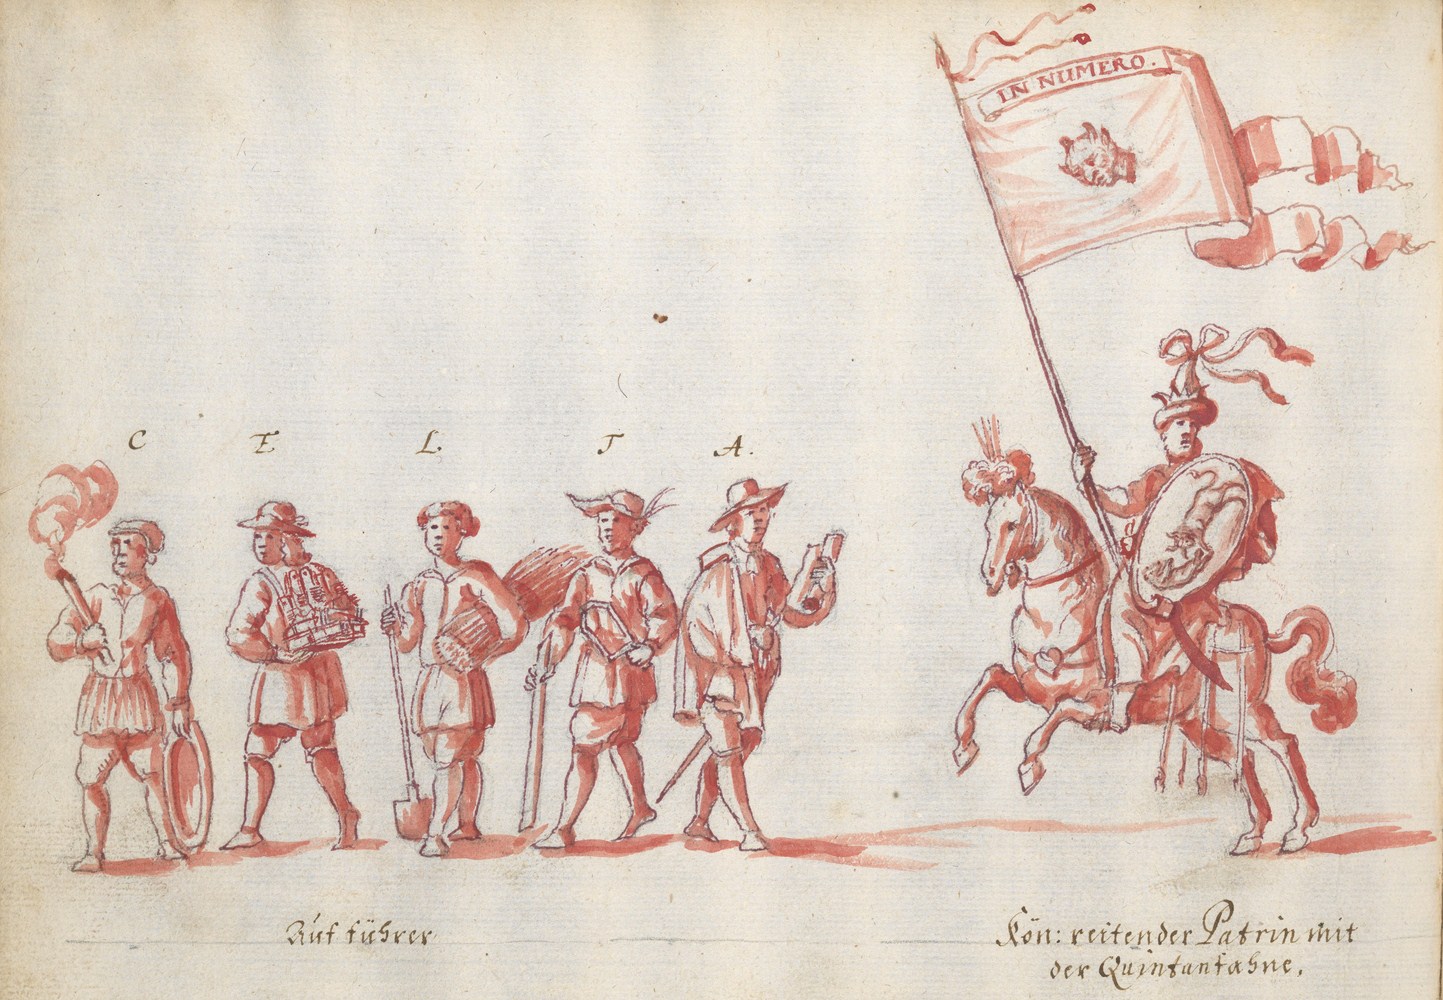 IN NUMERO.
C E L. T A.
Aufführer
Kön: reitender Patrin mit
der Quintanfahne.